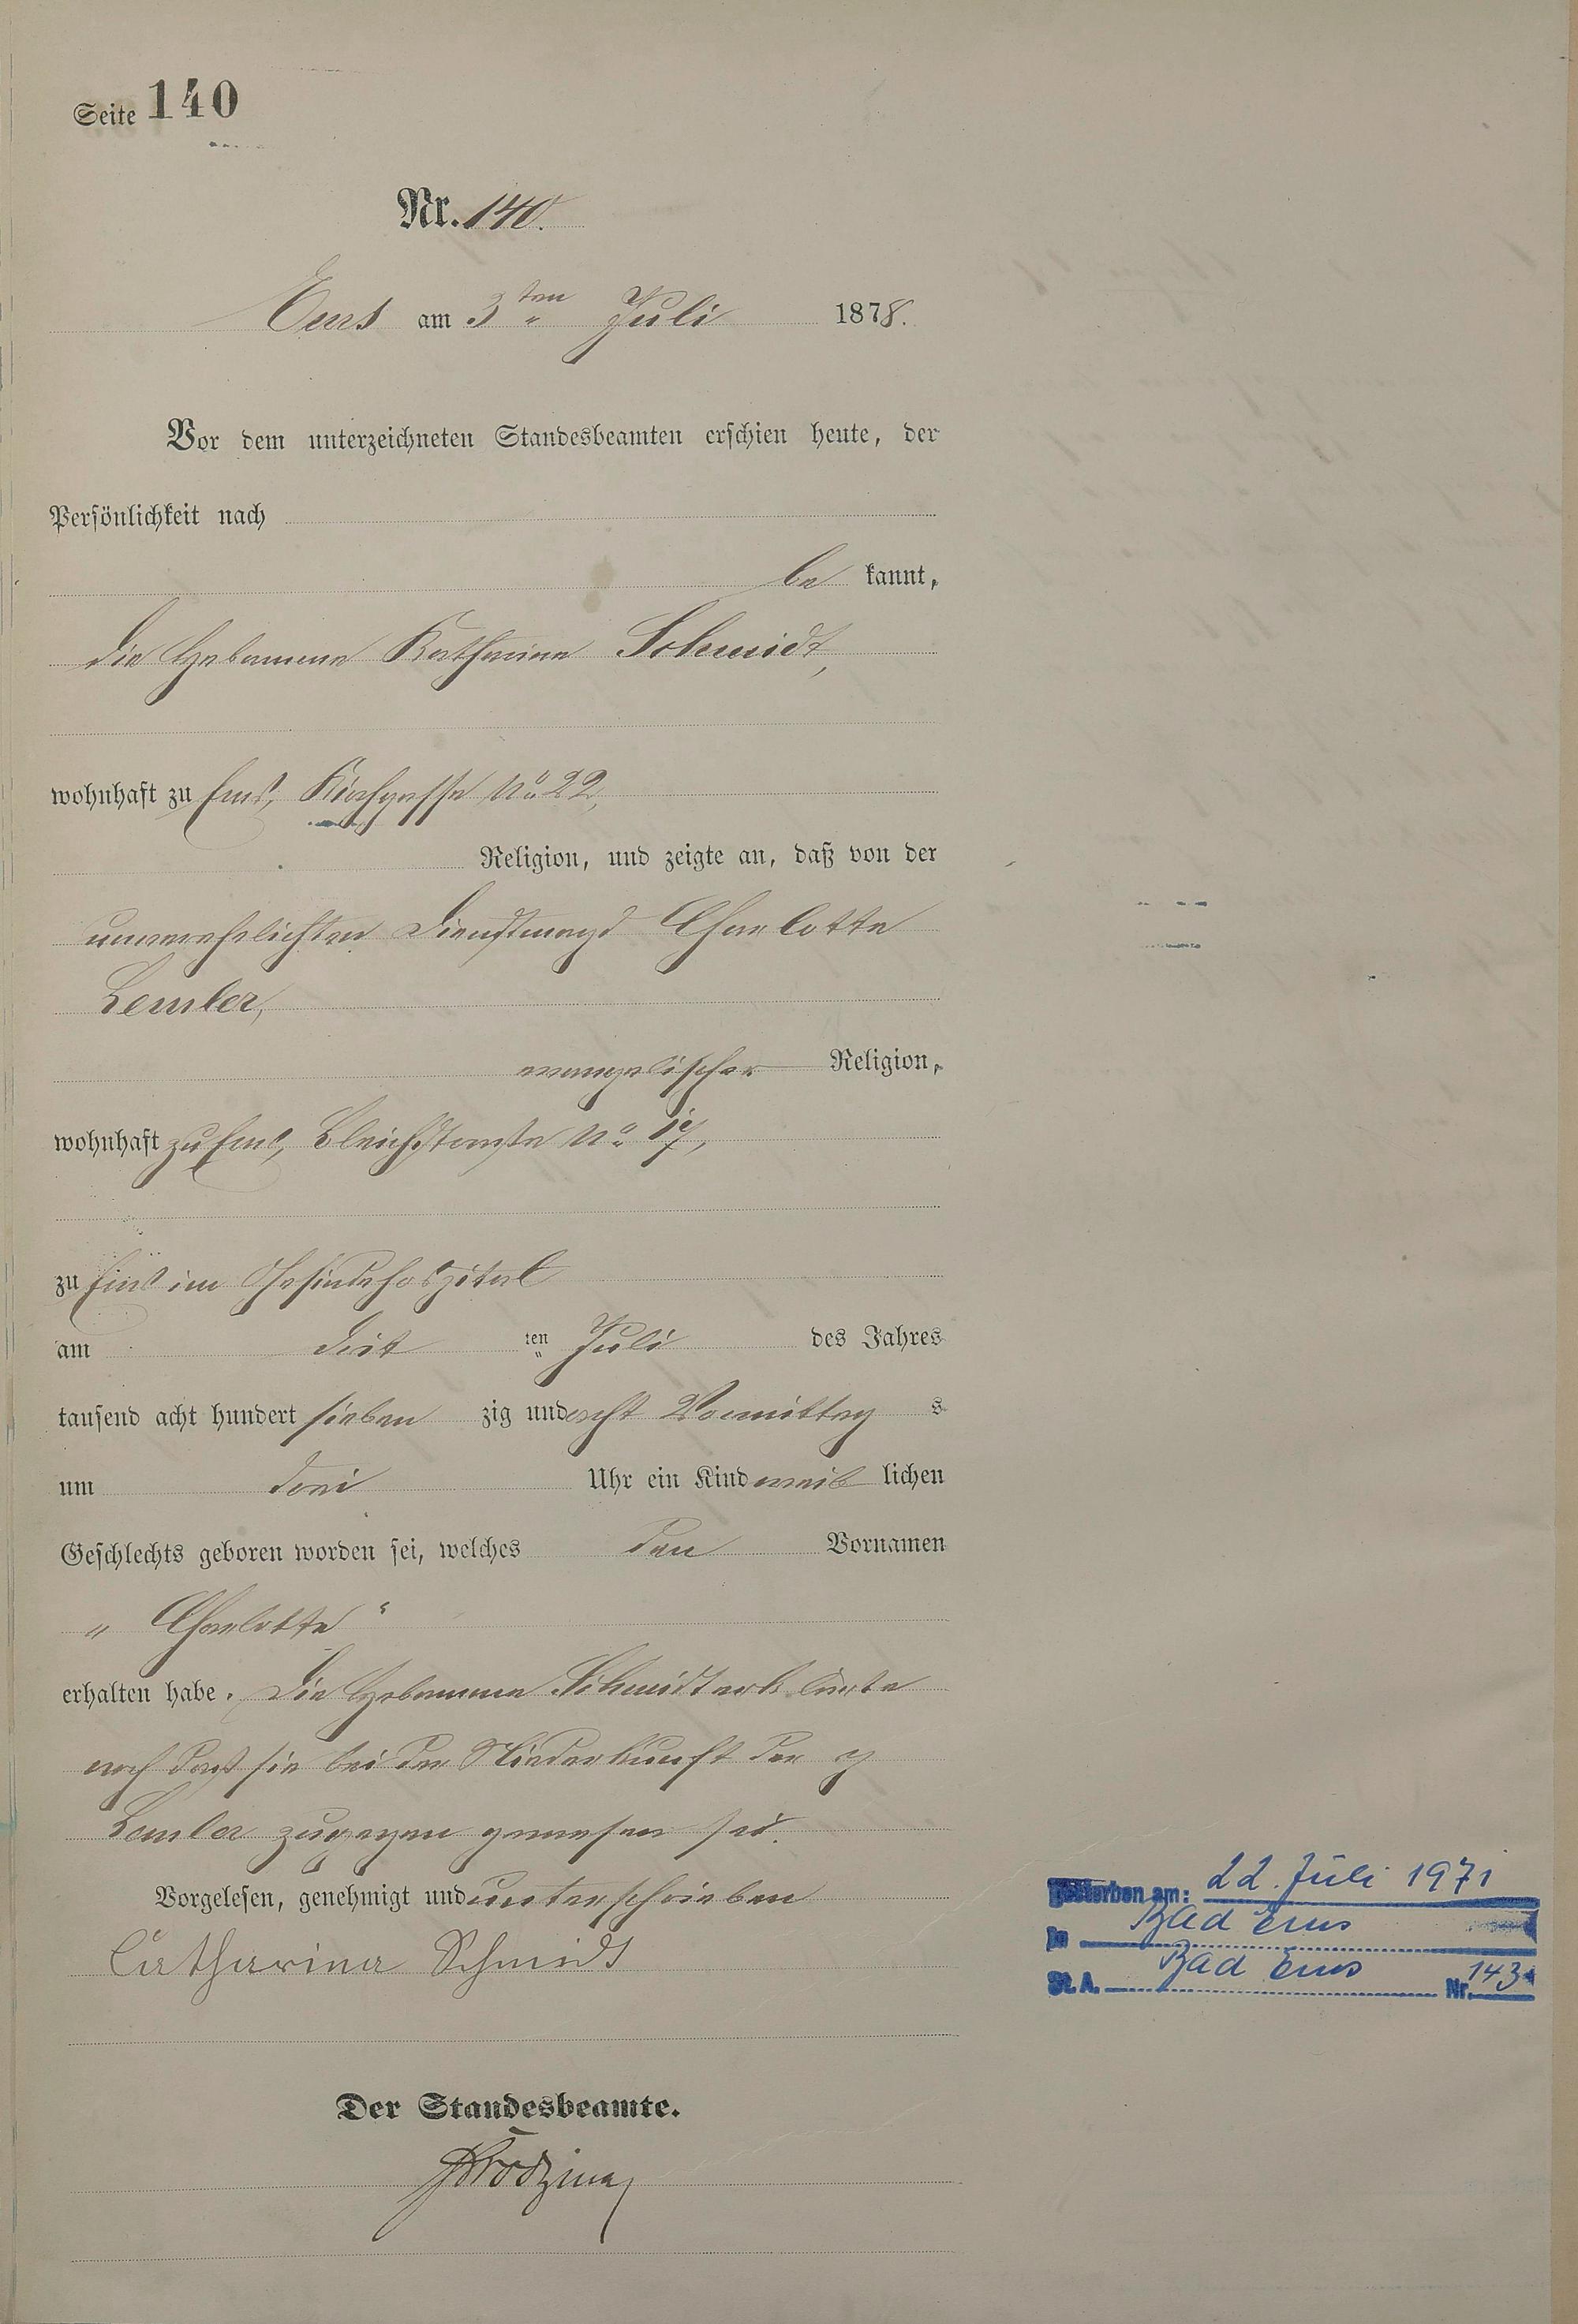 Seite 140
Nr. 140.
Ems am 3ten Juli 1878.
Vor dem unterzeichneten Standesbeamten erschien heute, der
Persönlichkeit nach
be kannt,
die Hebamme Katharina Schmidt,
wohnhaft zu Ems, Kirchgasse No 22,
Religion, und zeigte an, daß von der
unverehelichten Dienstmagd Charlotte
Lemler,
evangelischer Religion,
wohnhaft zu Ems, Bleichstraße No 17,
zu Ems im Gesindehospital
am ten Juli des Jahres
tausend acht hundert sieben zig und acht Vormittag s
um drei Uhr ein Kind weib lichen
Geschlechts geboren worden sei, welches den Vornamen
„ Charlotte “
erhalten habe. Die Hebamme Schmidt erklärte
noch daß sie bei der Niederkunft der
Lemler zugegen gewesen sei.
Vorgelesen, genehmigt und unterschrieben
Catharina Schmidt
Der Standesbeamte.
Gestorben am: 22. Juli 1971
in Bad Ems
St. A. Bad Ems Nr. 143